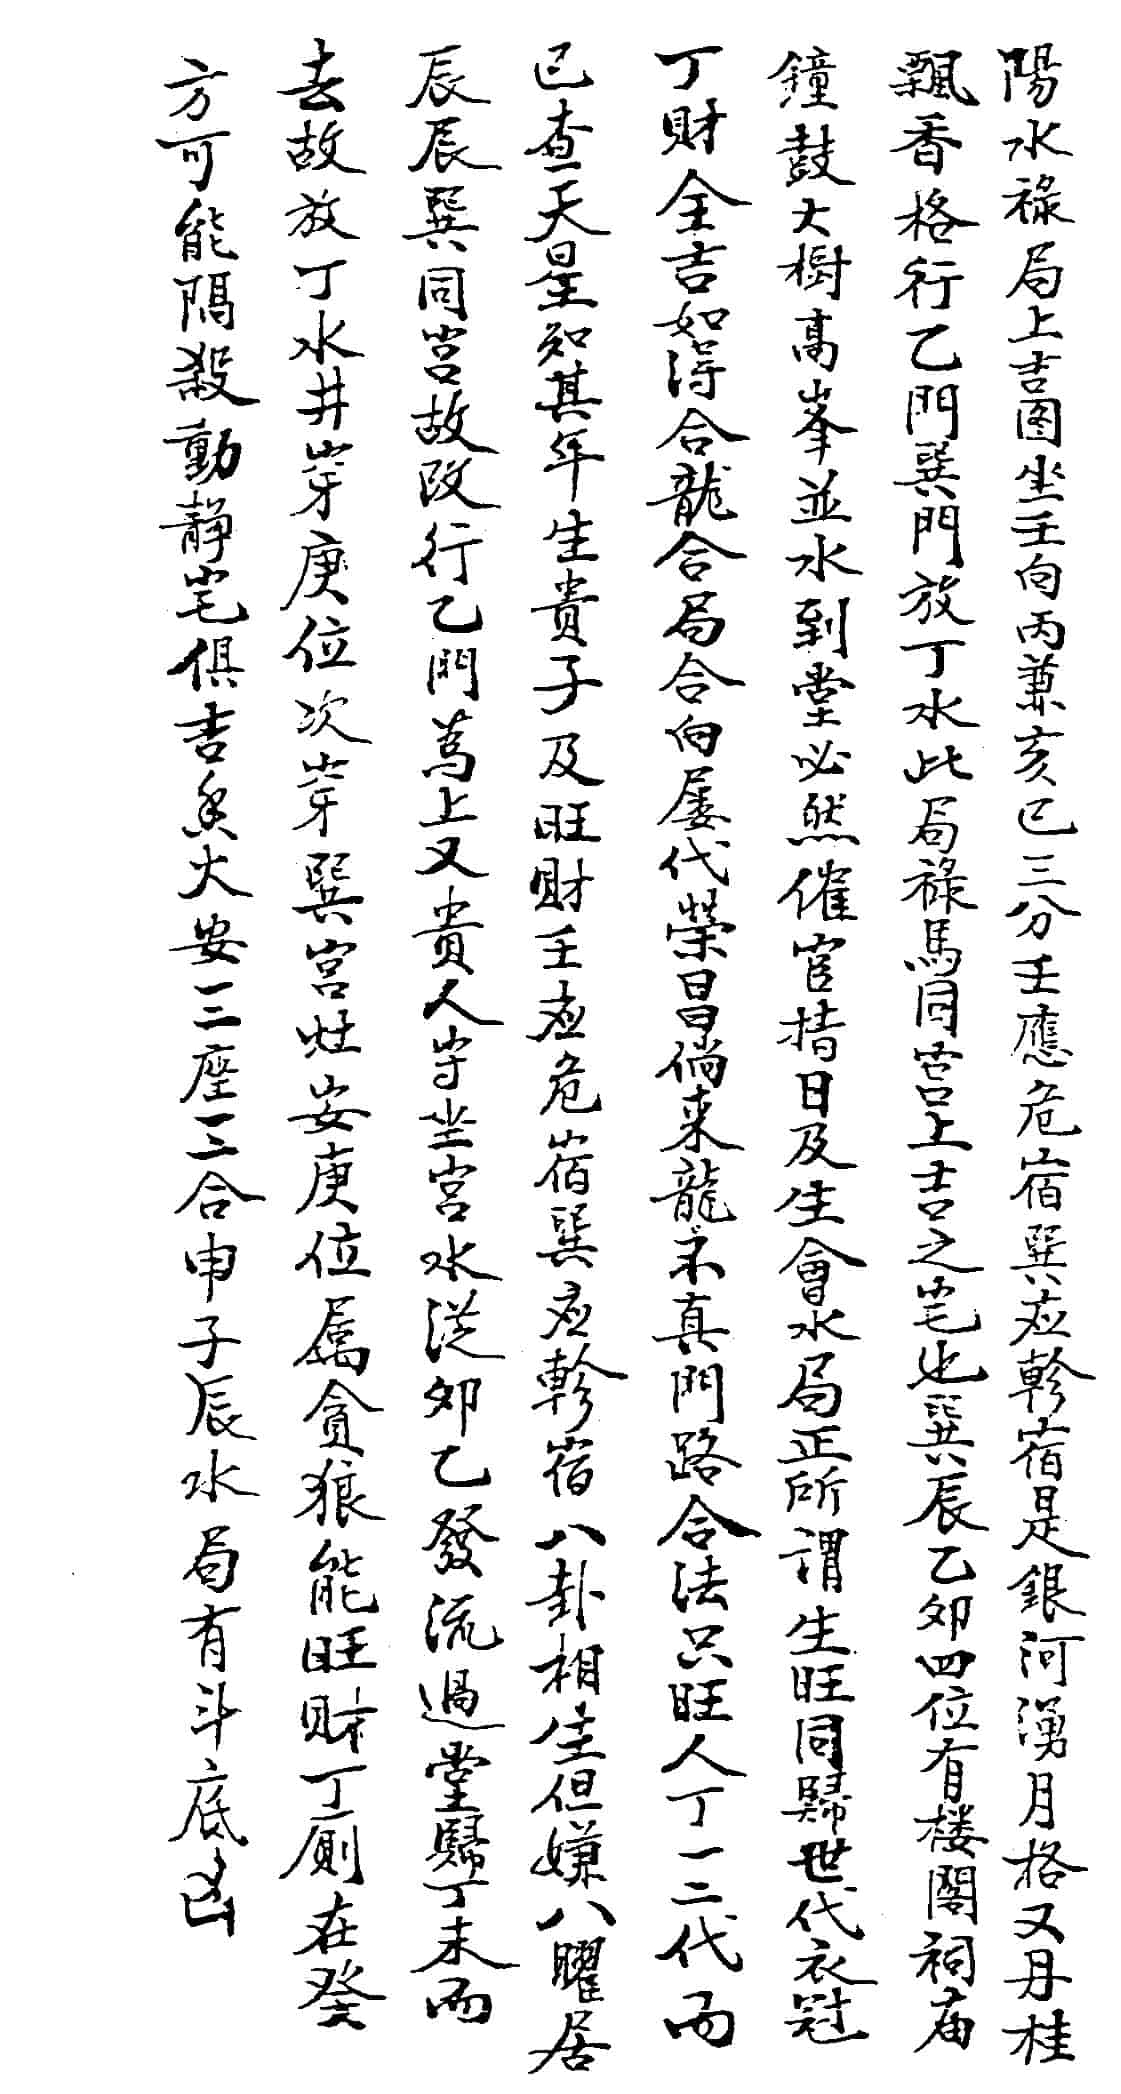 陽水祿局上吉图坐壬向丙兼亥巳三分壬應危宿巽应軫宿是銀河湧月格又丹桂
飄香格行乙門巽門放丁水此局祿馬同宮上吉之宅也巽辰乙卯四位有楼閣祠庙
鐘鼓大樹高峯並水到堂必然催官指日及生會水局正所謂生旺同歸世代衣冠
丁財全吉如得合龍合局合向屡代榮昌倘来龍不真門路合法只旺人丁一二代而
已查天星知其年生貴子及旺財壬应危宿巽应軫宿八卦相生但嫌八曜居
辰辰巽同宮故改行乙門為上又貴人守坐宮水從卯乙發流過堂歸丁未而
去故放丁水井穿庚位次穿巽宮灶安庚位属貪狼能旺财丁厠在癸
方可能隔殺動静宅俱吉矣大安三座三合申子辰水局有斗底凶